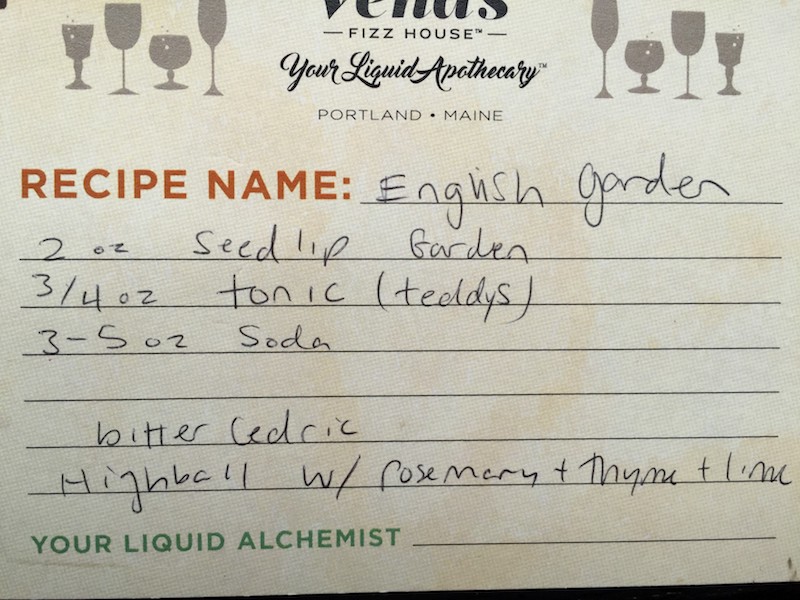 Vena's
FIZZ HOUSE™
Your Liquid Apothecary™
PORTLAND • MAINE
RECIPE NAME: English Garden
2 oz Seedlip Garden
3/4 oz tonic (teddys)
3-5 oz Soda
bitter Cedric
Highball w/ rosemary + thyme + lime
YOUR LIQUID ALCHEMIST